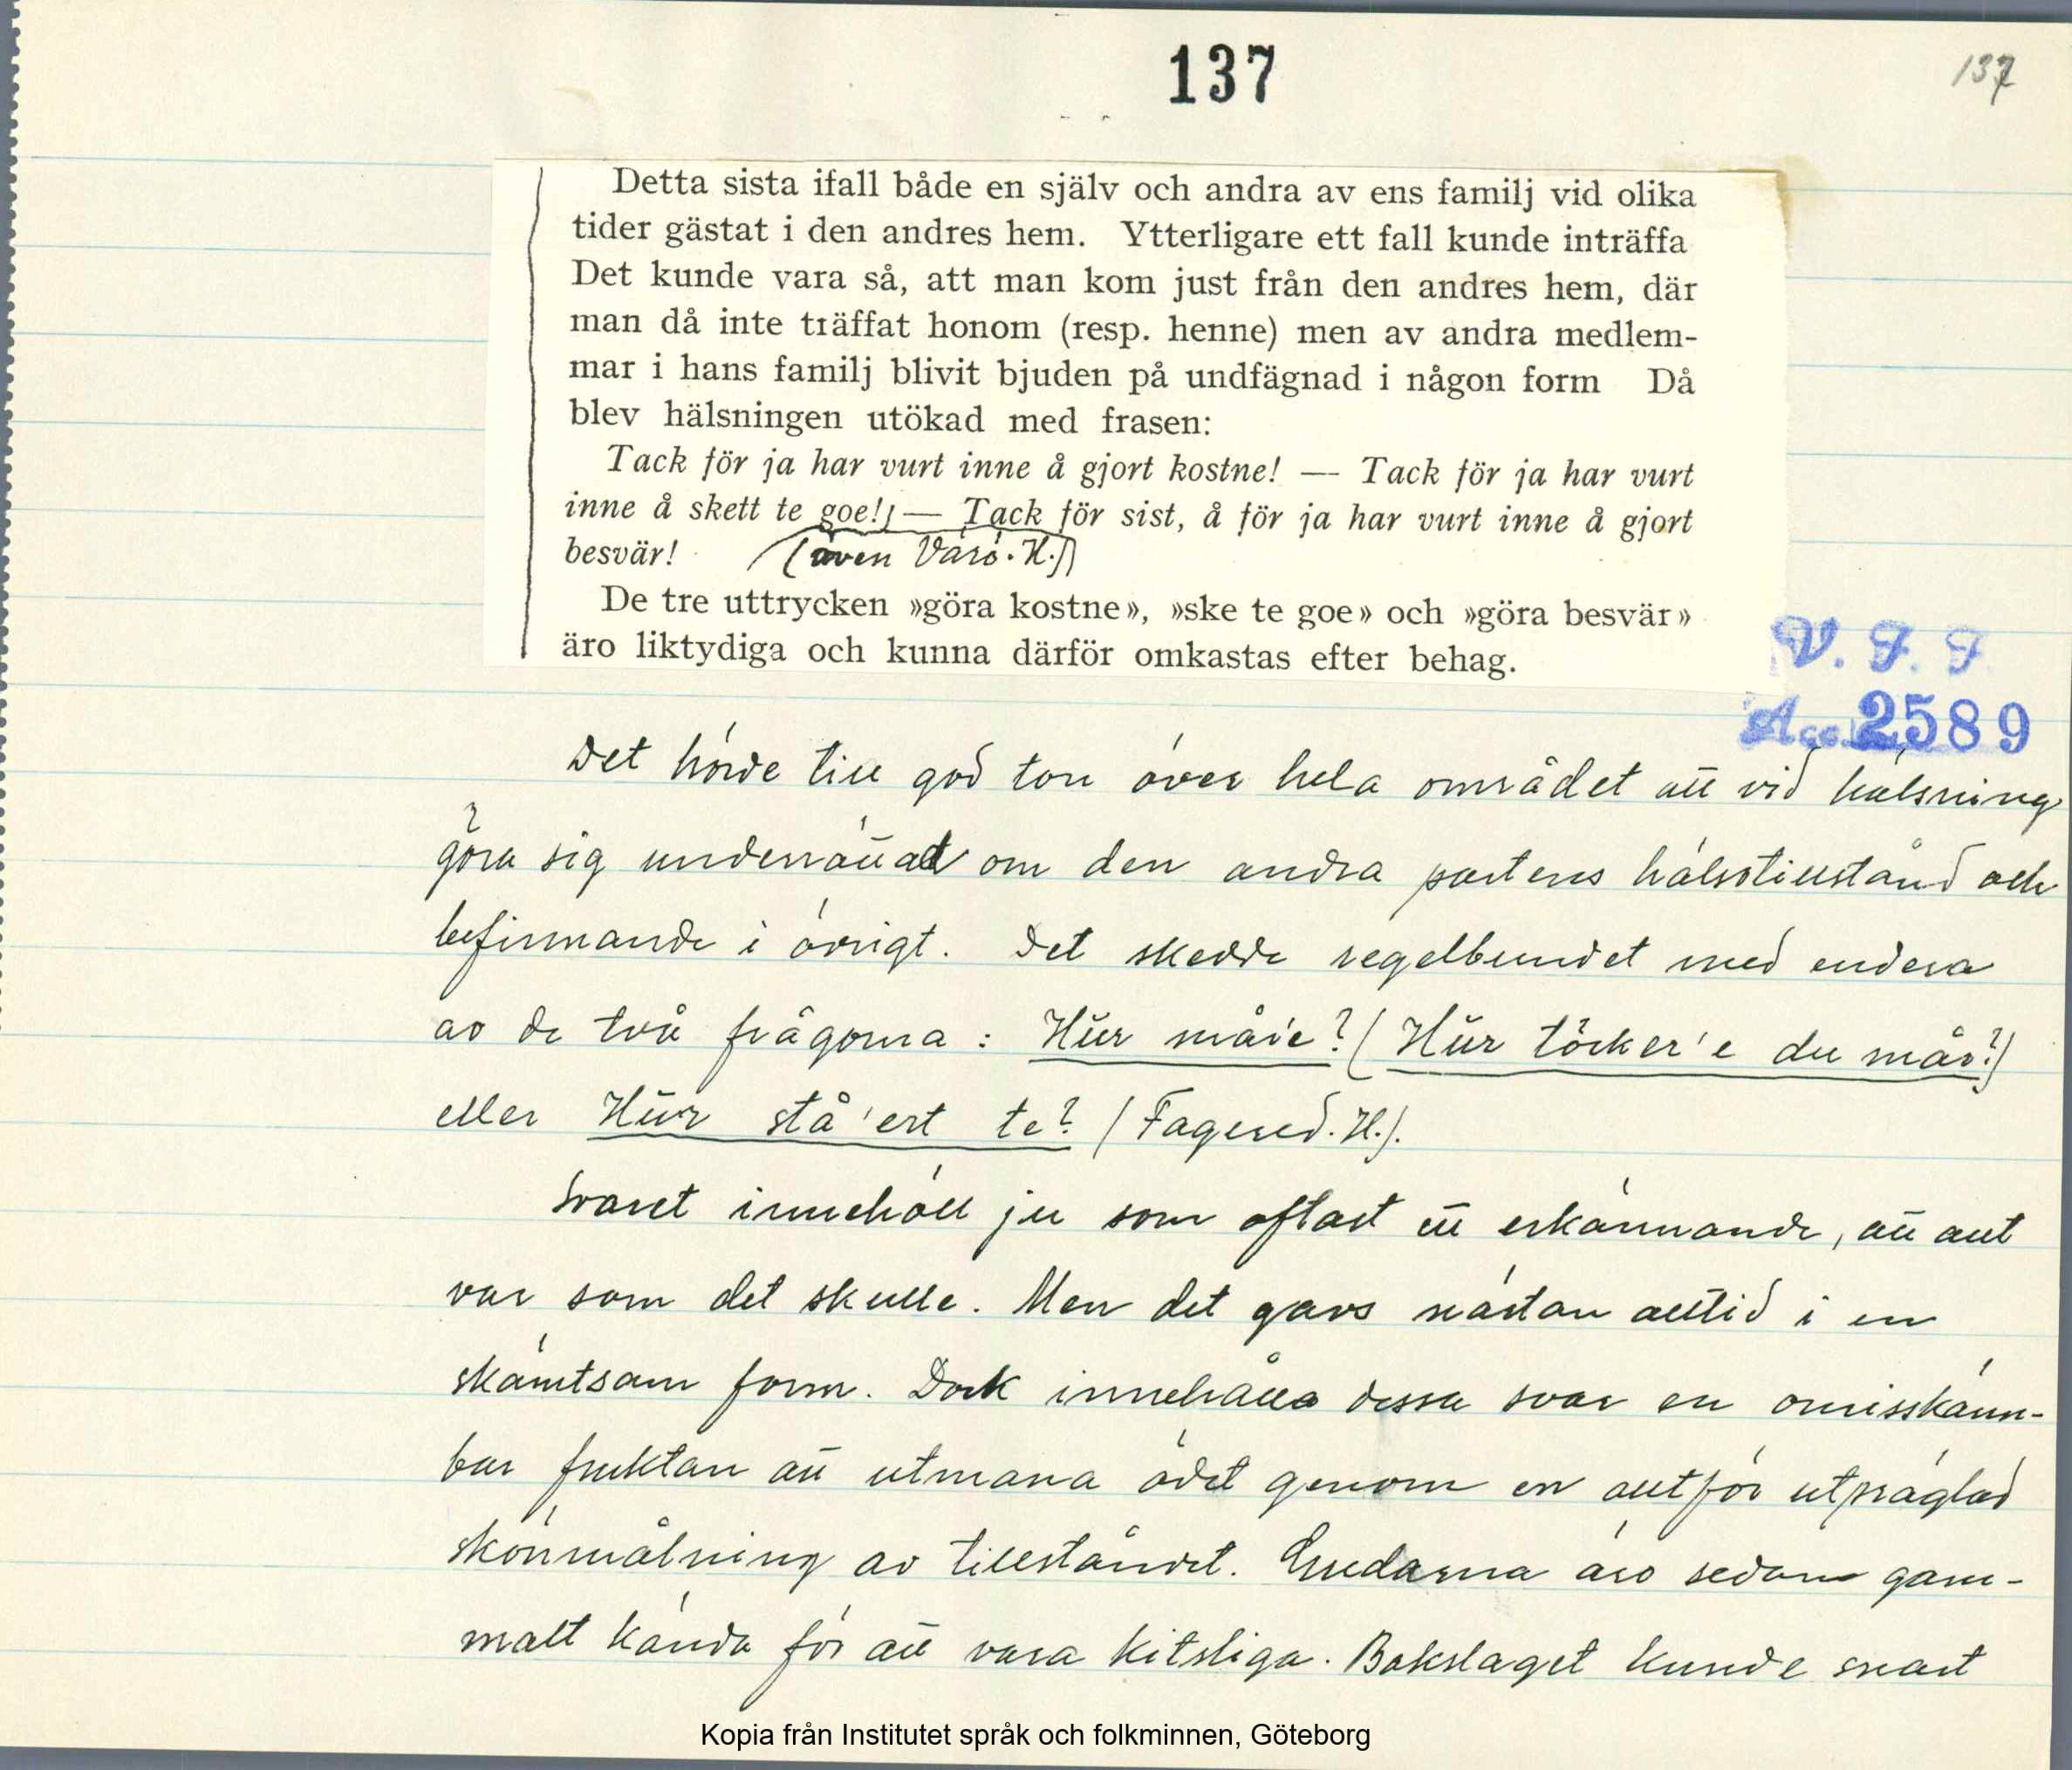 137
137
Detta sista ifall både en själv och andra av ens familj vid olika
tider gästat i den andres hem. Ytterligare ett fall kunde inträffa
Det kunde vara så, att man kom just från den andres hem, där
man då inte träffat honom (resp. henne) men av andra medlem-
mar i hans familj blivit bjuden på undfägnad i någon form Då
blev hälsningen utökad med frasen:
Tack för ja har vurt inne å gjort kostne! — Tack för ja har vurt
inne å skett te goe! — Tack för sist, å för ja har vurt inne å gjort
besvär! (även Värö. H.)
De tre uttrycken »göra kostne», »ske te goe» och »göra besvär»
äro liktydiga och kunna därför omkastas efter behag.
V. F. F.
Acc. 2589
Det hörde till god ton över hela området att vid hälsning
göra sig underrättad om den andra partens hälsotillstånd och
befinnande i övrigt. Det skedde regelbundet med endera
av de två frågorna: Hur mår'e? (Hur töcker'e du mår?)
eller Hur stå'ert te? (Fagered. H.).
Svaret innehöll ju som oftast ett erkännande, att allt
var som det skulle. Men det gavs nästan alltid i en
skämtsam form. Dock innehålla dessa svar en omisskänn-
bar fruktan att utmana ödet genom en alltför utpräglad
skönmålning av tillståndet. Gudarna äro sedan gam-
malt kända för att vara kitsliga. Bakslaget kunde snart
Kopia från Institutet språk och folkminnen, Göteborg